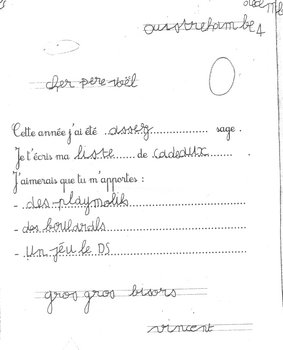 oustrehambe 4
cher pere noël
Cette année j'ai été assez sage.
Je t'écris ma liste de cadeaux
J'aimerais que tu m'apportes :
- des playmobils
- des
- un jeu de DS
gros gros bisors
vincent